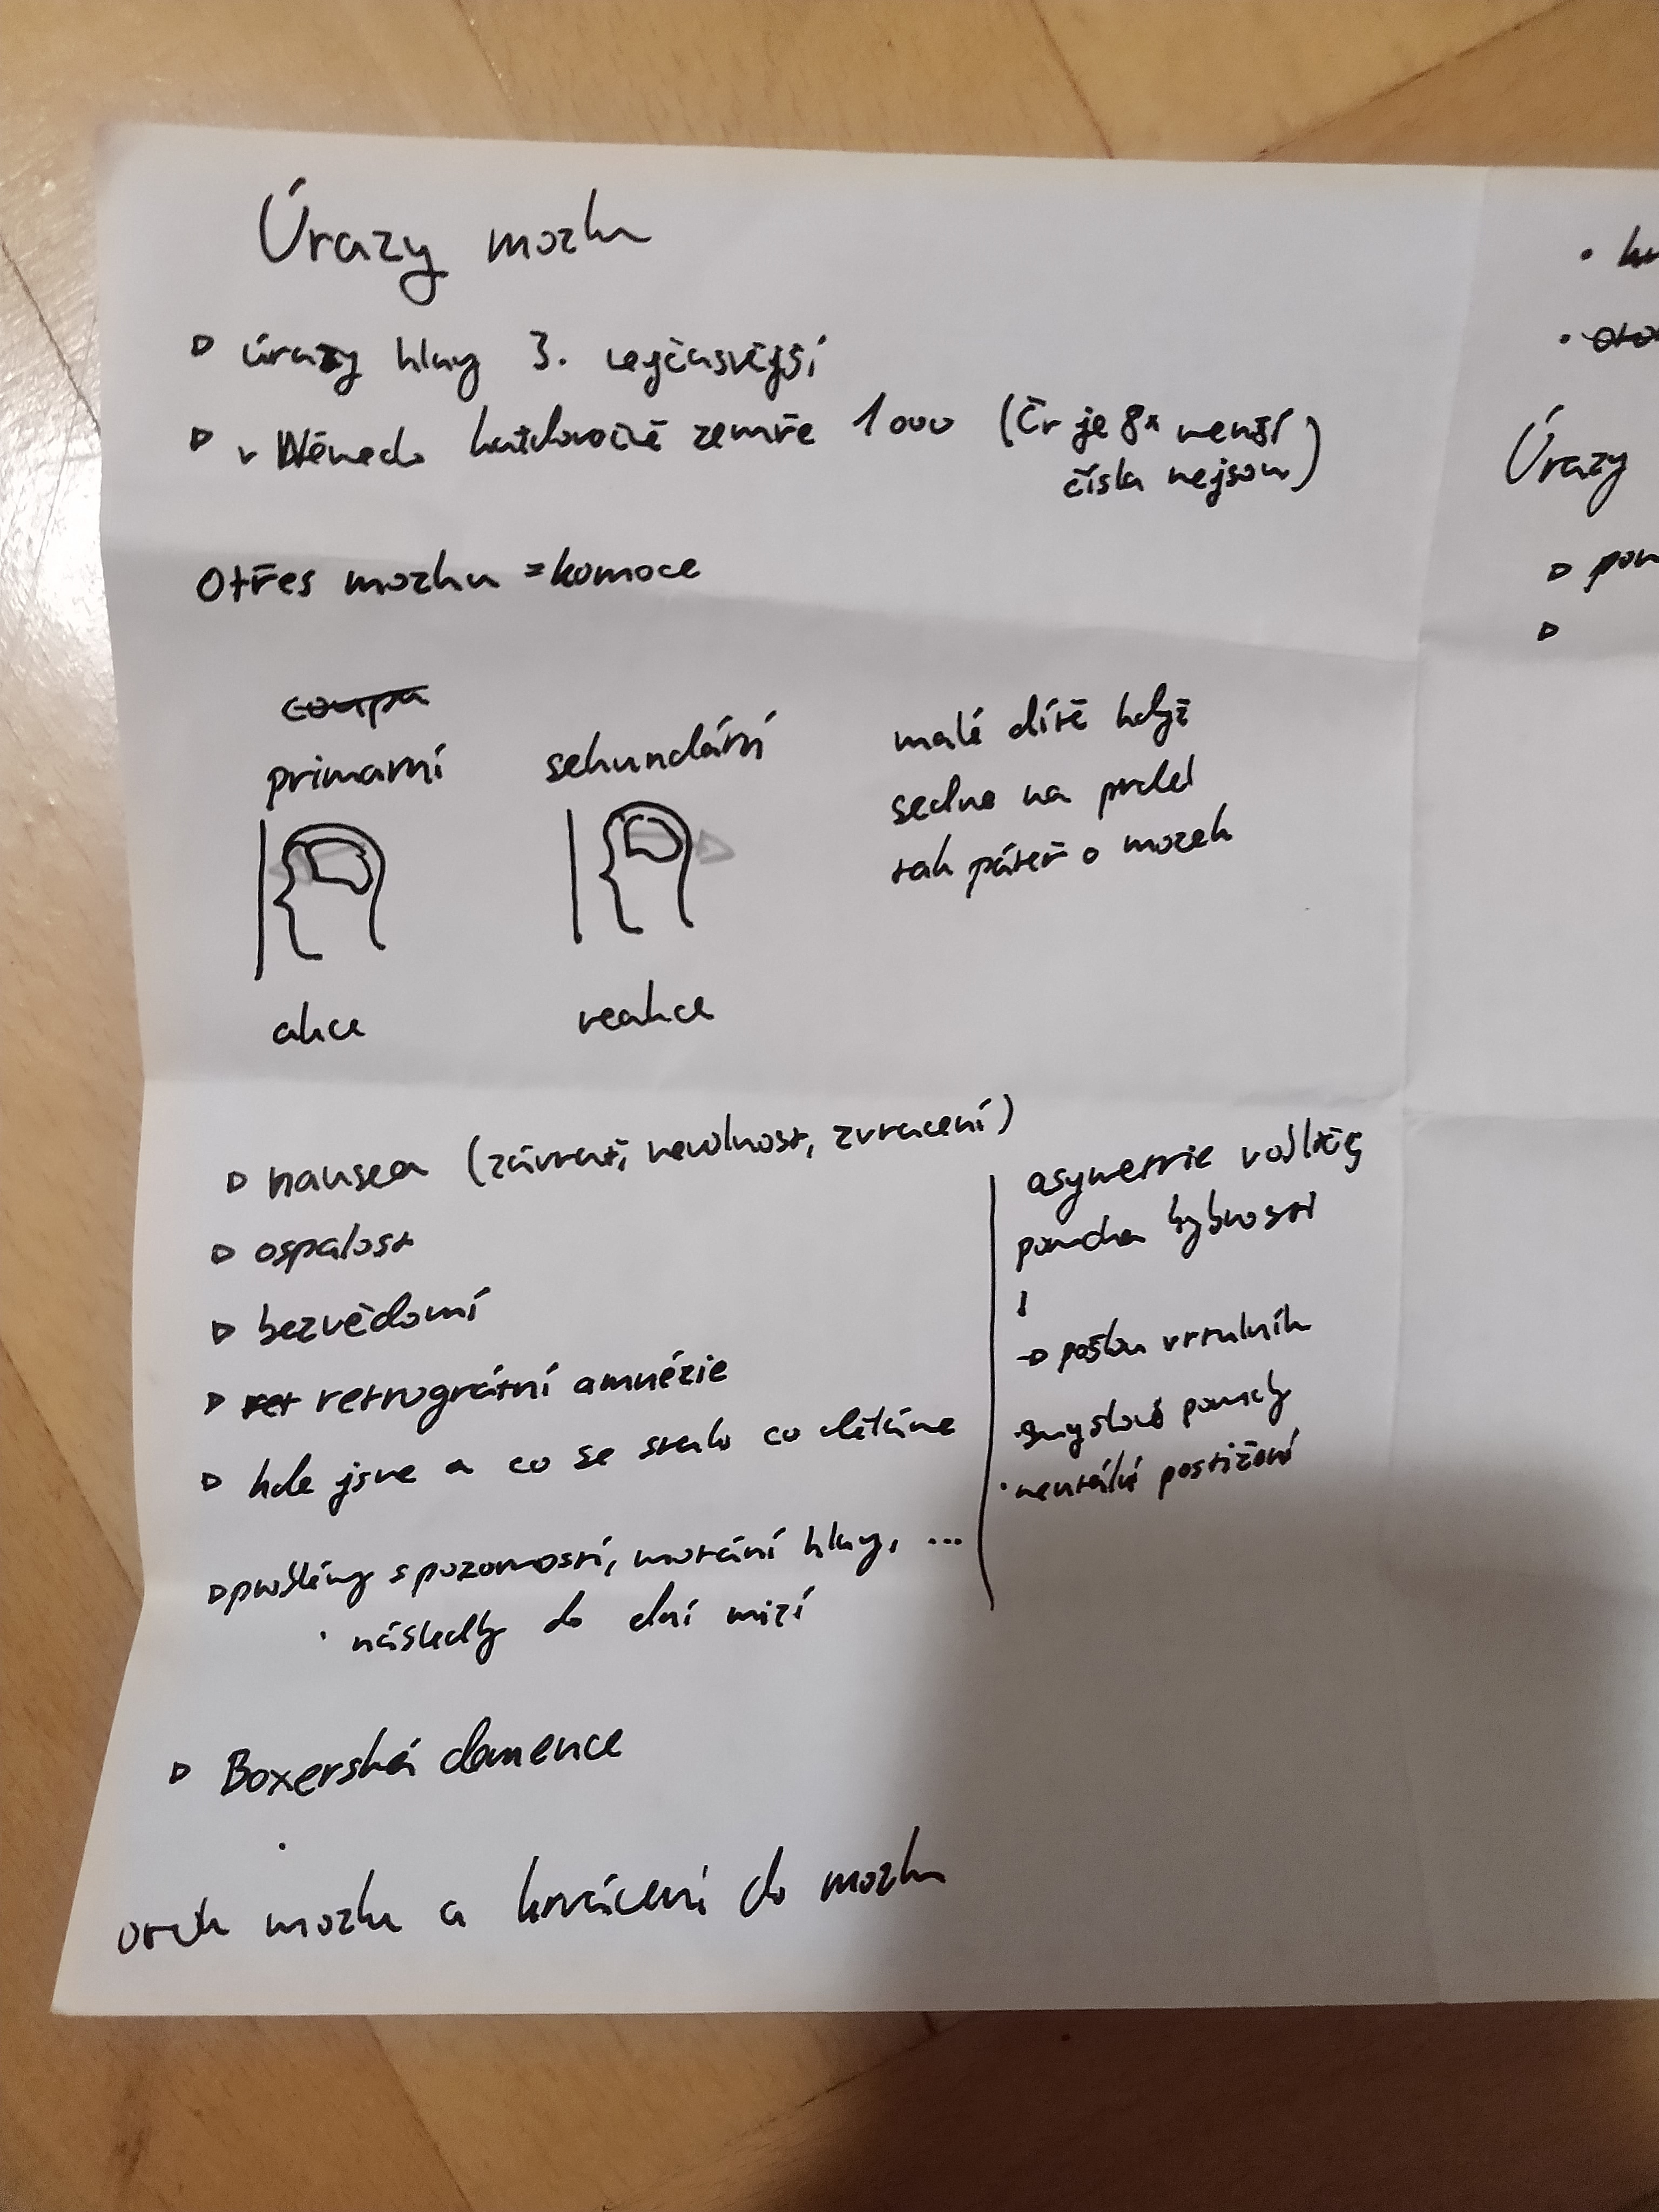 Úrazy mozku
úrazy hlavy 3. nejčastější
v Německo každoročně zemře 1000 (čr je 8x menší
čísla nejsou)
Otřes mozku = komoce
primarní
sekundární
akce
reakce
malé dítě když
sedne na prdel
tak páteř o mozek
nausea (závrať, nevolnost, zvracení)
ospalost
bezvědomí
ret retrográtní amnézie
kde jsme a co se stalo co děláme
problémy s pozorností, motání hlavy, ...
následky do dní mizí
asymetrie
porucha hybnosti
pošlou vrtulník
smyslové poruchy
mentální postižení
Boxerská demence
otok mozku a krvácení do mozku
Úrazy